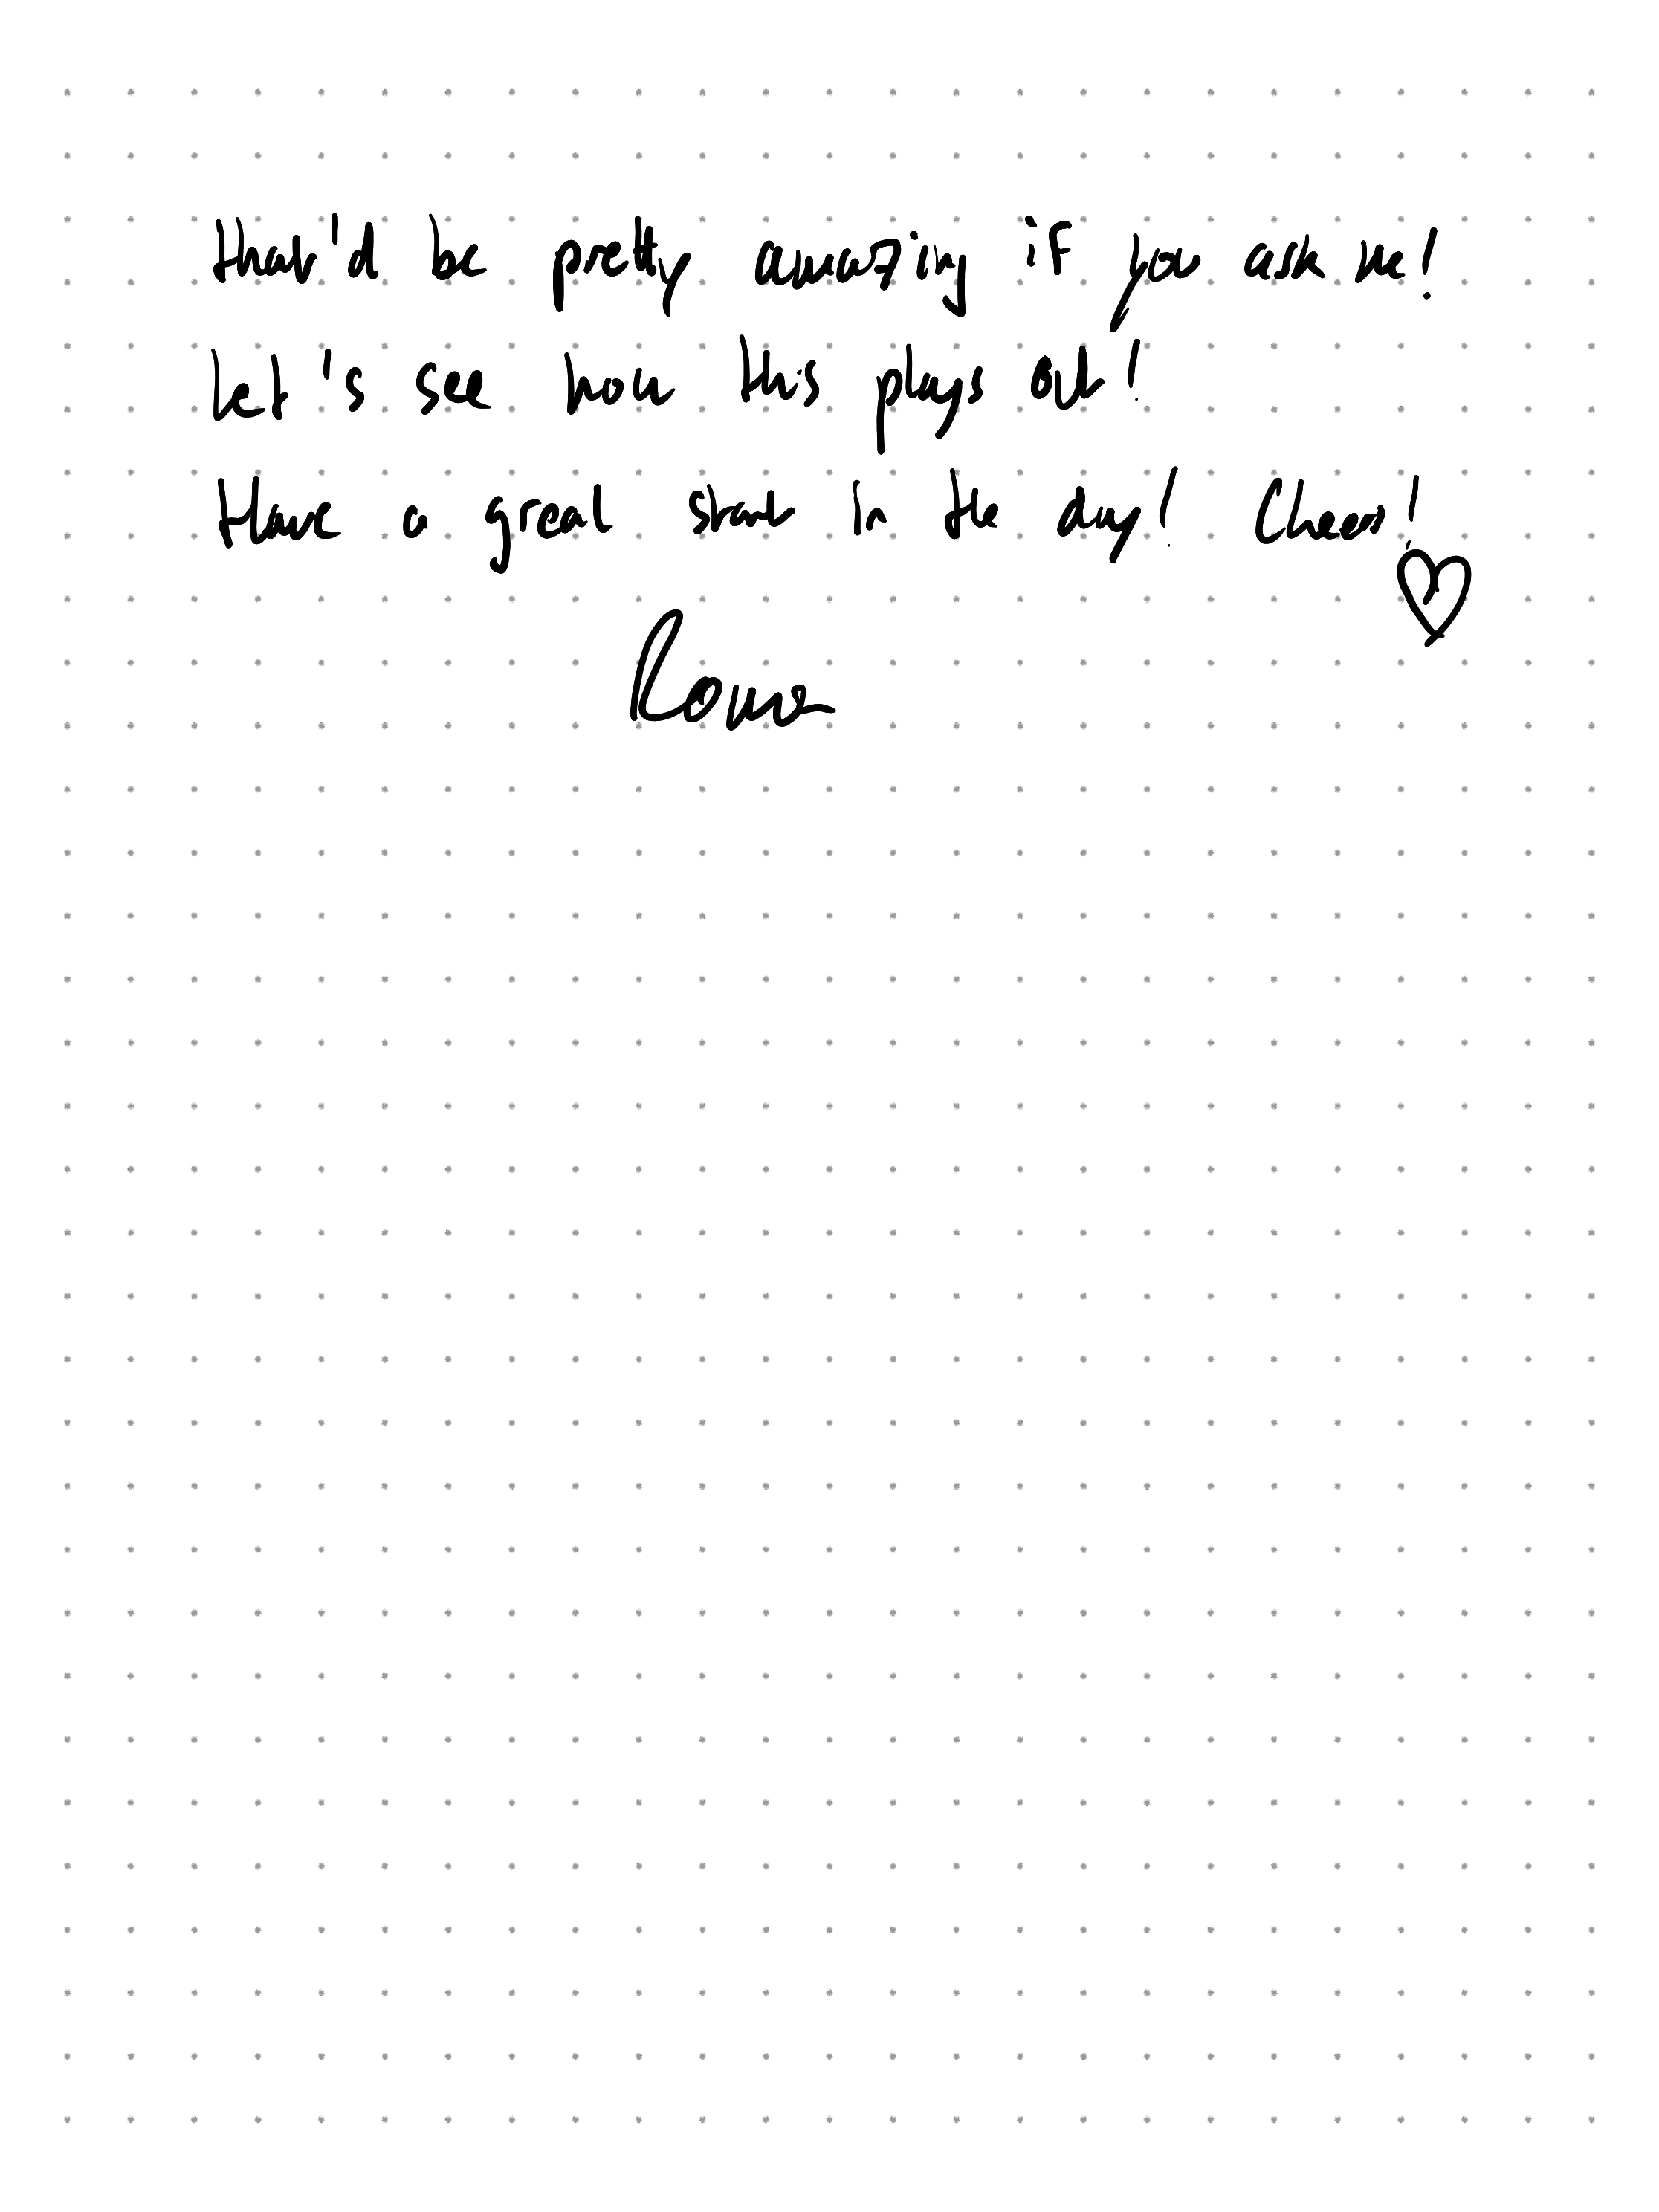 that'd be pretty amazing if you ask me!
Let's see how this plays out!
Have a great start in the day! Cheers!